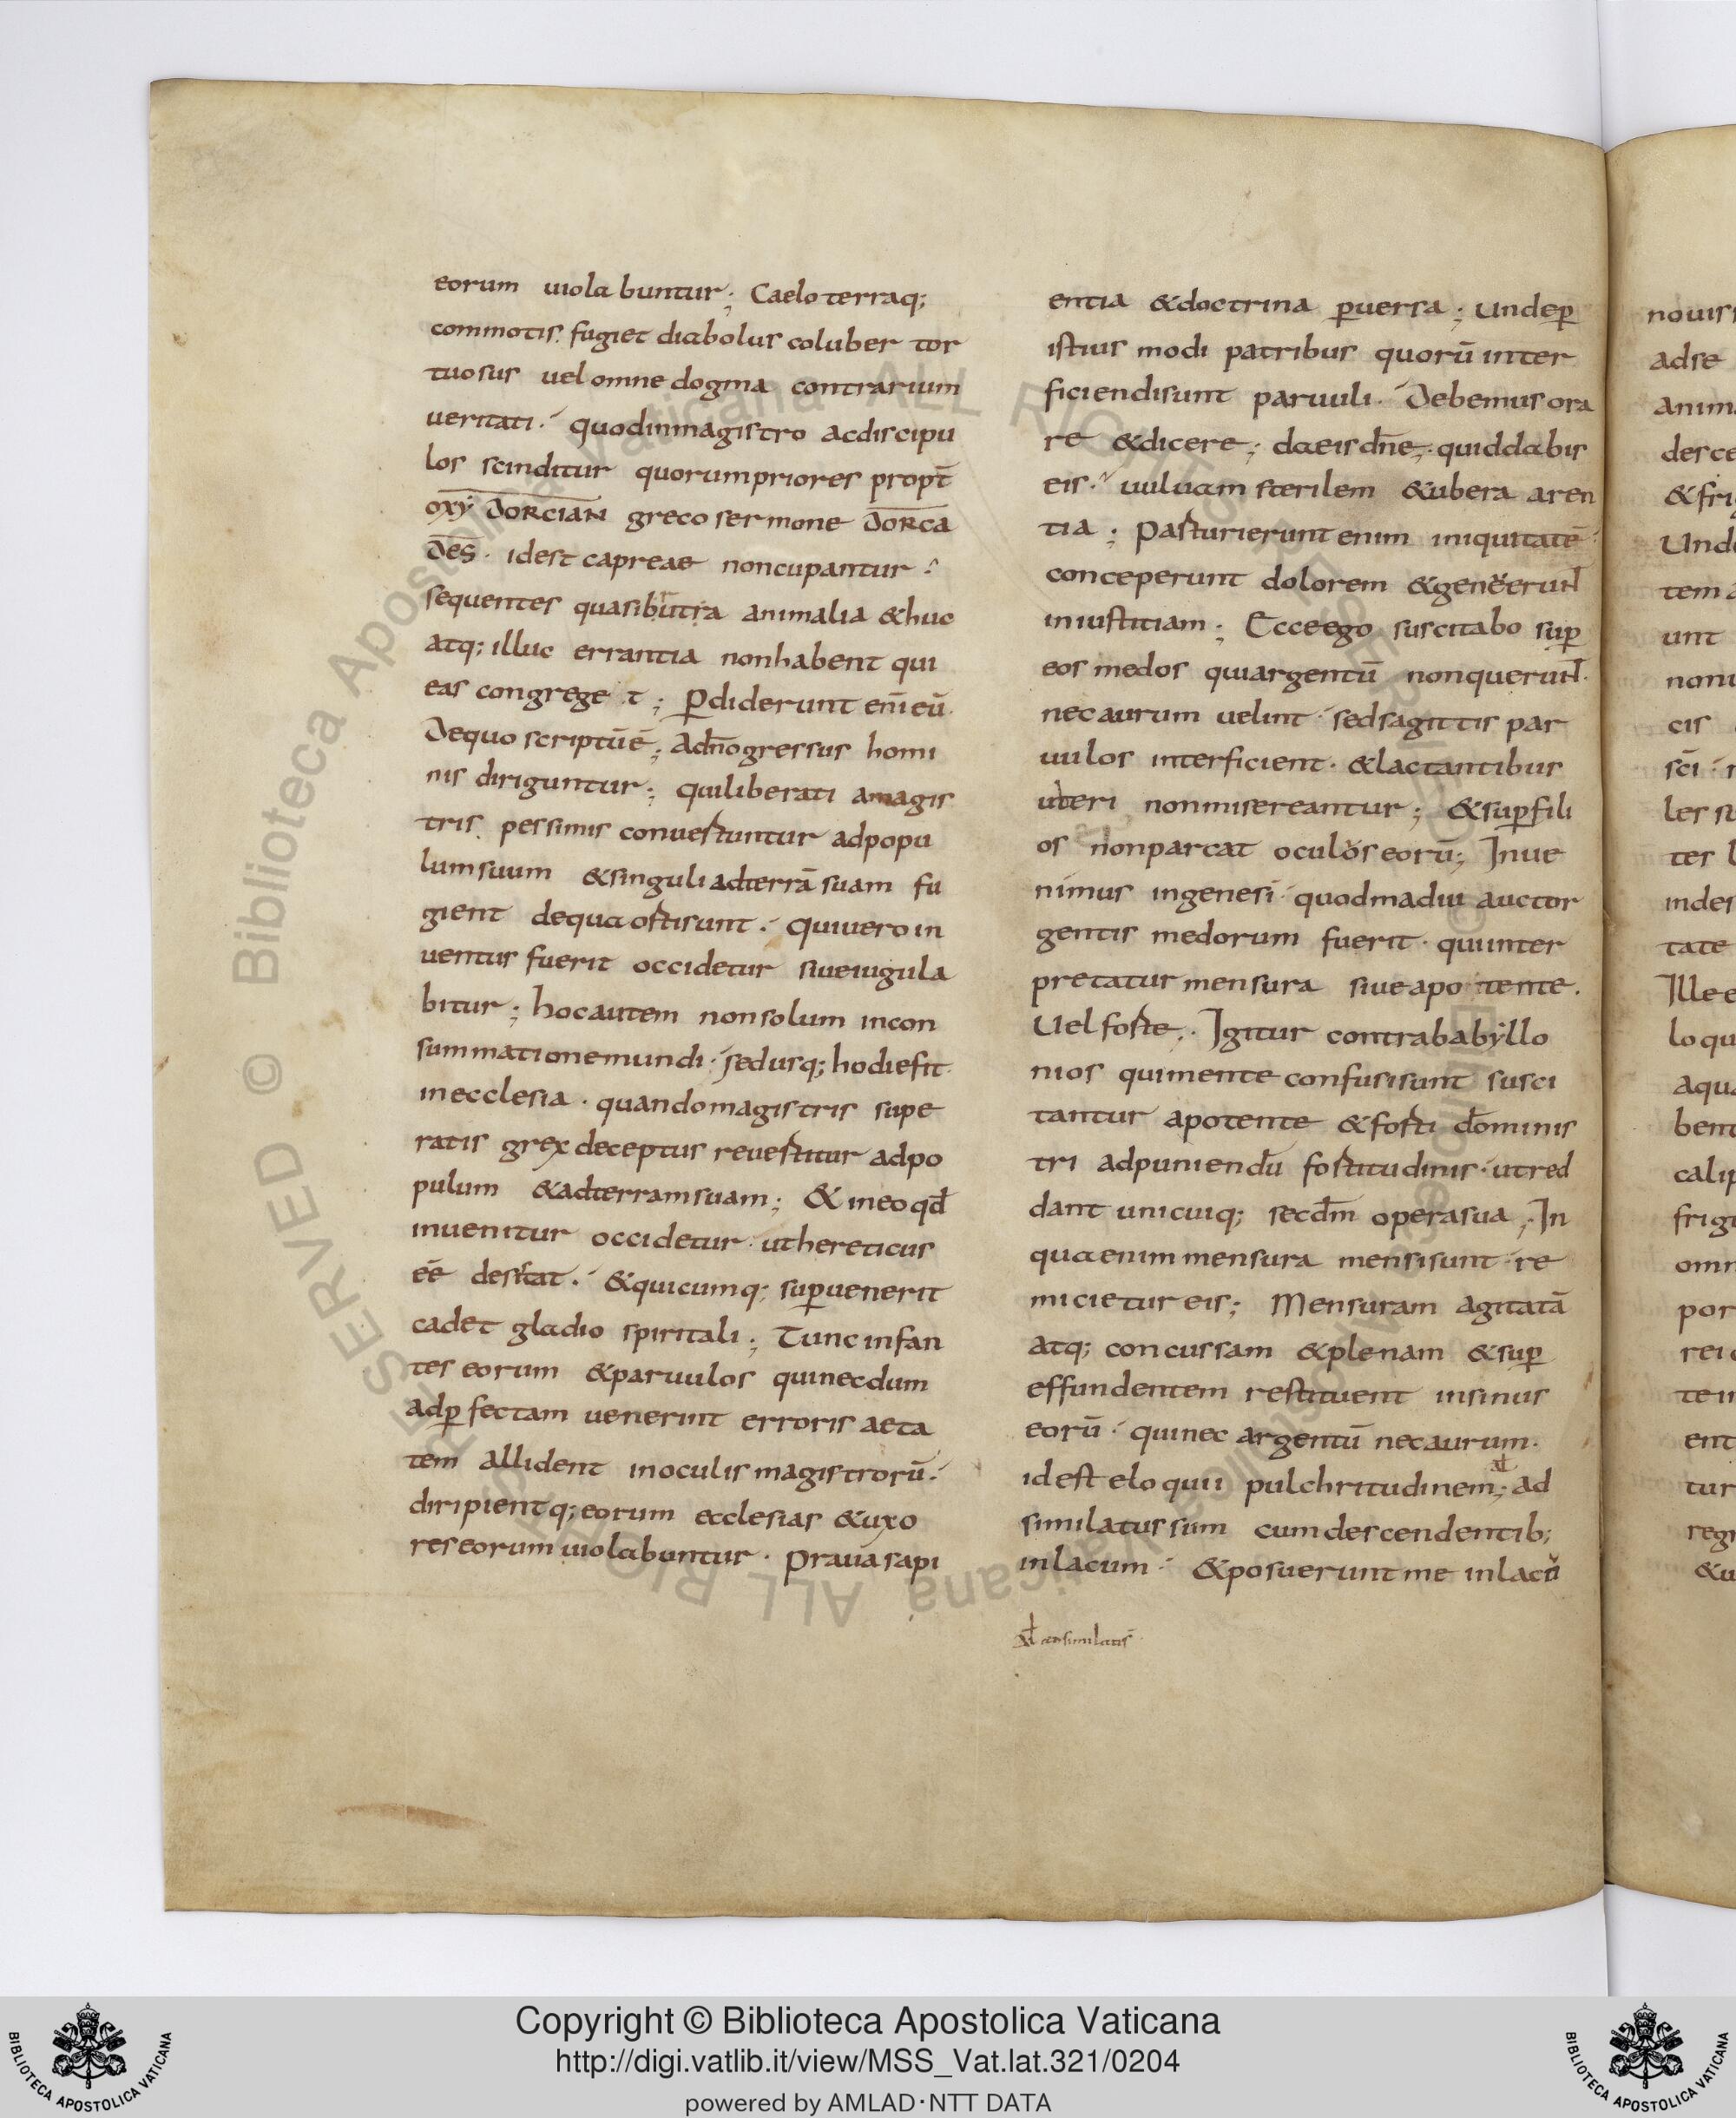 eorum uiolabuntur; Caelo terraq;
commotis. fugiet diabolus coluber tor
tuosus uel omne dogma contrarium
ueritati. quod in magistro ac discipu
los scinditur quorum priores propt̄
oxy DORCIAN greco sermone DORCA
DES. id est capreae noncupantur.
sequentes quasi bruta animalia & huc
atq; illuc errantia non habent qui
eas congreget; ꝑdiderunt eni̅ eū.
De quo scriptū ē; Ad̄no gressus homi
nis diriguntur; qui liberati a magis
tris pessimis conuertuntur ad popu
lum suum & singuli ad terrā suam fu
gient de qua orti sunt. qui uero in
uentus fuerit occidetur siue iugula
bitur; hoc autem non solum in con
summatione mundi. sed usq; hodie fit.
in ecclesia. quando magistris supe
ratis grex deceptus reuertitur ad po
pulum & ad terram suam; & in eo qd̄
inuenitur occidetur. ut hereticus
éé desinat. & quicumq; suꝑuenerit
cadet gladio spiritali; Tunc infan
tes eorum & paruulos qui necdum
ad ꝑfectam uenerint erroris aeta
tem allident in oculis magistrorū.
diripientq; eorum ecclesias & uxo
res eorum uiolabuntur. praua sapi
entia & doctrina ꝑuersa; unde ꝑ
istius modi patribus quorū inter
ficiendi sunt paruuli. Debemus ora
re & dicere; da eis dn̄e. quid dabis
eis. uuluam sterilem & ubera aren
tia; parturierunt enim iniquitatē
conceperunt dolorem & genuerunt
iniustitiam; Ecce ego suscitabo suꝑ
eos medos qui argentū non querunt.
nec aurum uelint. sed sagittis par
uulos interficient. & lactantibus
uteri non misereantur; & suꝑ fili
os non parcat oculos eorū; Inue
nimus in genesi. quod madiu auctor
gentis medorum fuerit. qui inter
pretatur mensura siue a potente.
Uel forte. Igitur contra babyllo
nios qui mente confusi sunt susci
tantur a potente & forti d̄o minis
tri ad puniendū fortitudinis. ut red
dant unicuiq; secd̄m opera sua. In
qua enim mensura mensi sunt. re
micietur eis; Mensuram agitatā
atq; concussam & plenam & suꝑ
effundentem restituent in sinus
eorū. qui nec argentū nec aurum.
id est eloquii pulchritudinem; ad
similatus sum cum descendentib;
in lacum. & posuerunt me in lacū
assimilatis
nouiss
ad se
anim
desce
& frig
Unde
tem a
unt
non
cis
sc̄i
les su
ter
indes
tate
Ille e
loqu
aqua
bent
calip
frigi
omn
por
rei
te
ent
tur
regn
& u
Copyright © Biblioteca Apostolica Vaticana
http://digi.vatlib.it/view/MSS_Vat.lat.321/0204
powered by AMLAD·NTT DATA
BIBLIOTECA APOSTOLICA VATICANA
BIBLIOTECA APOSTOLICA VATICANA